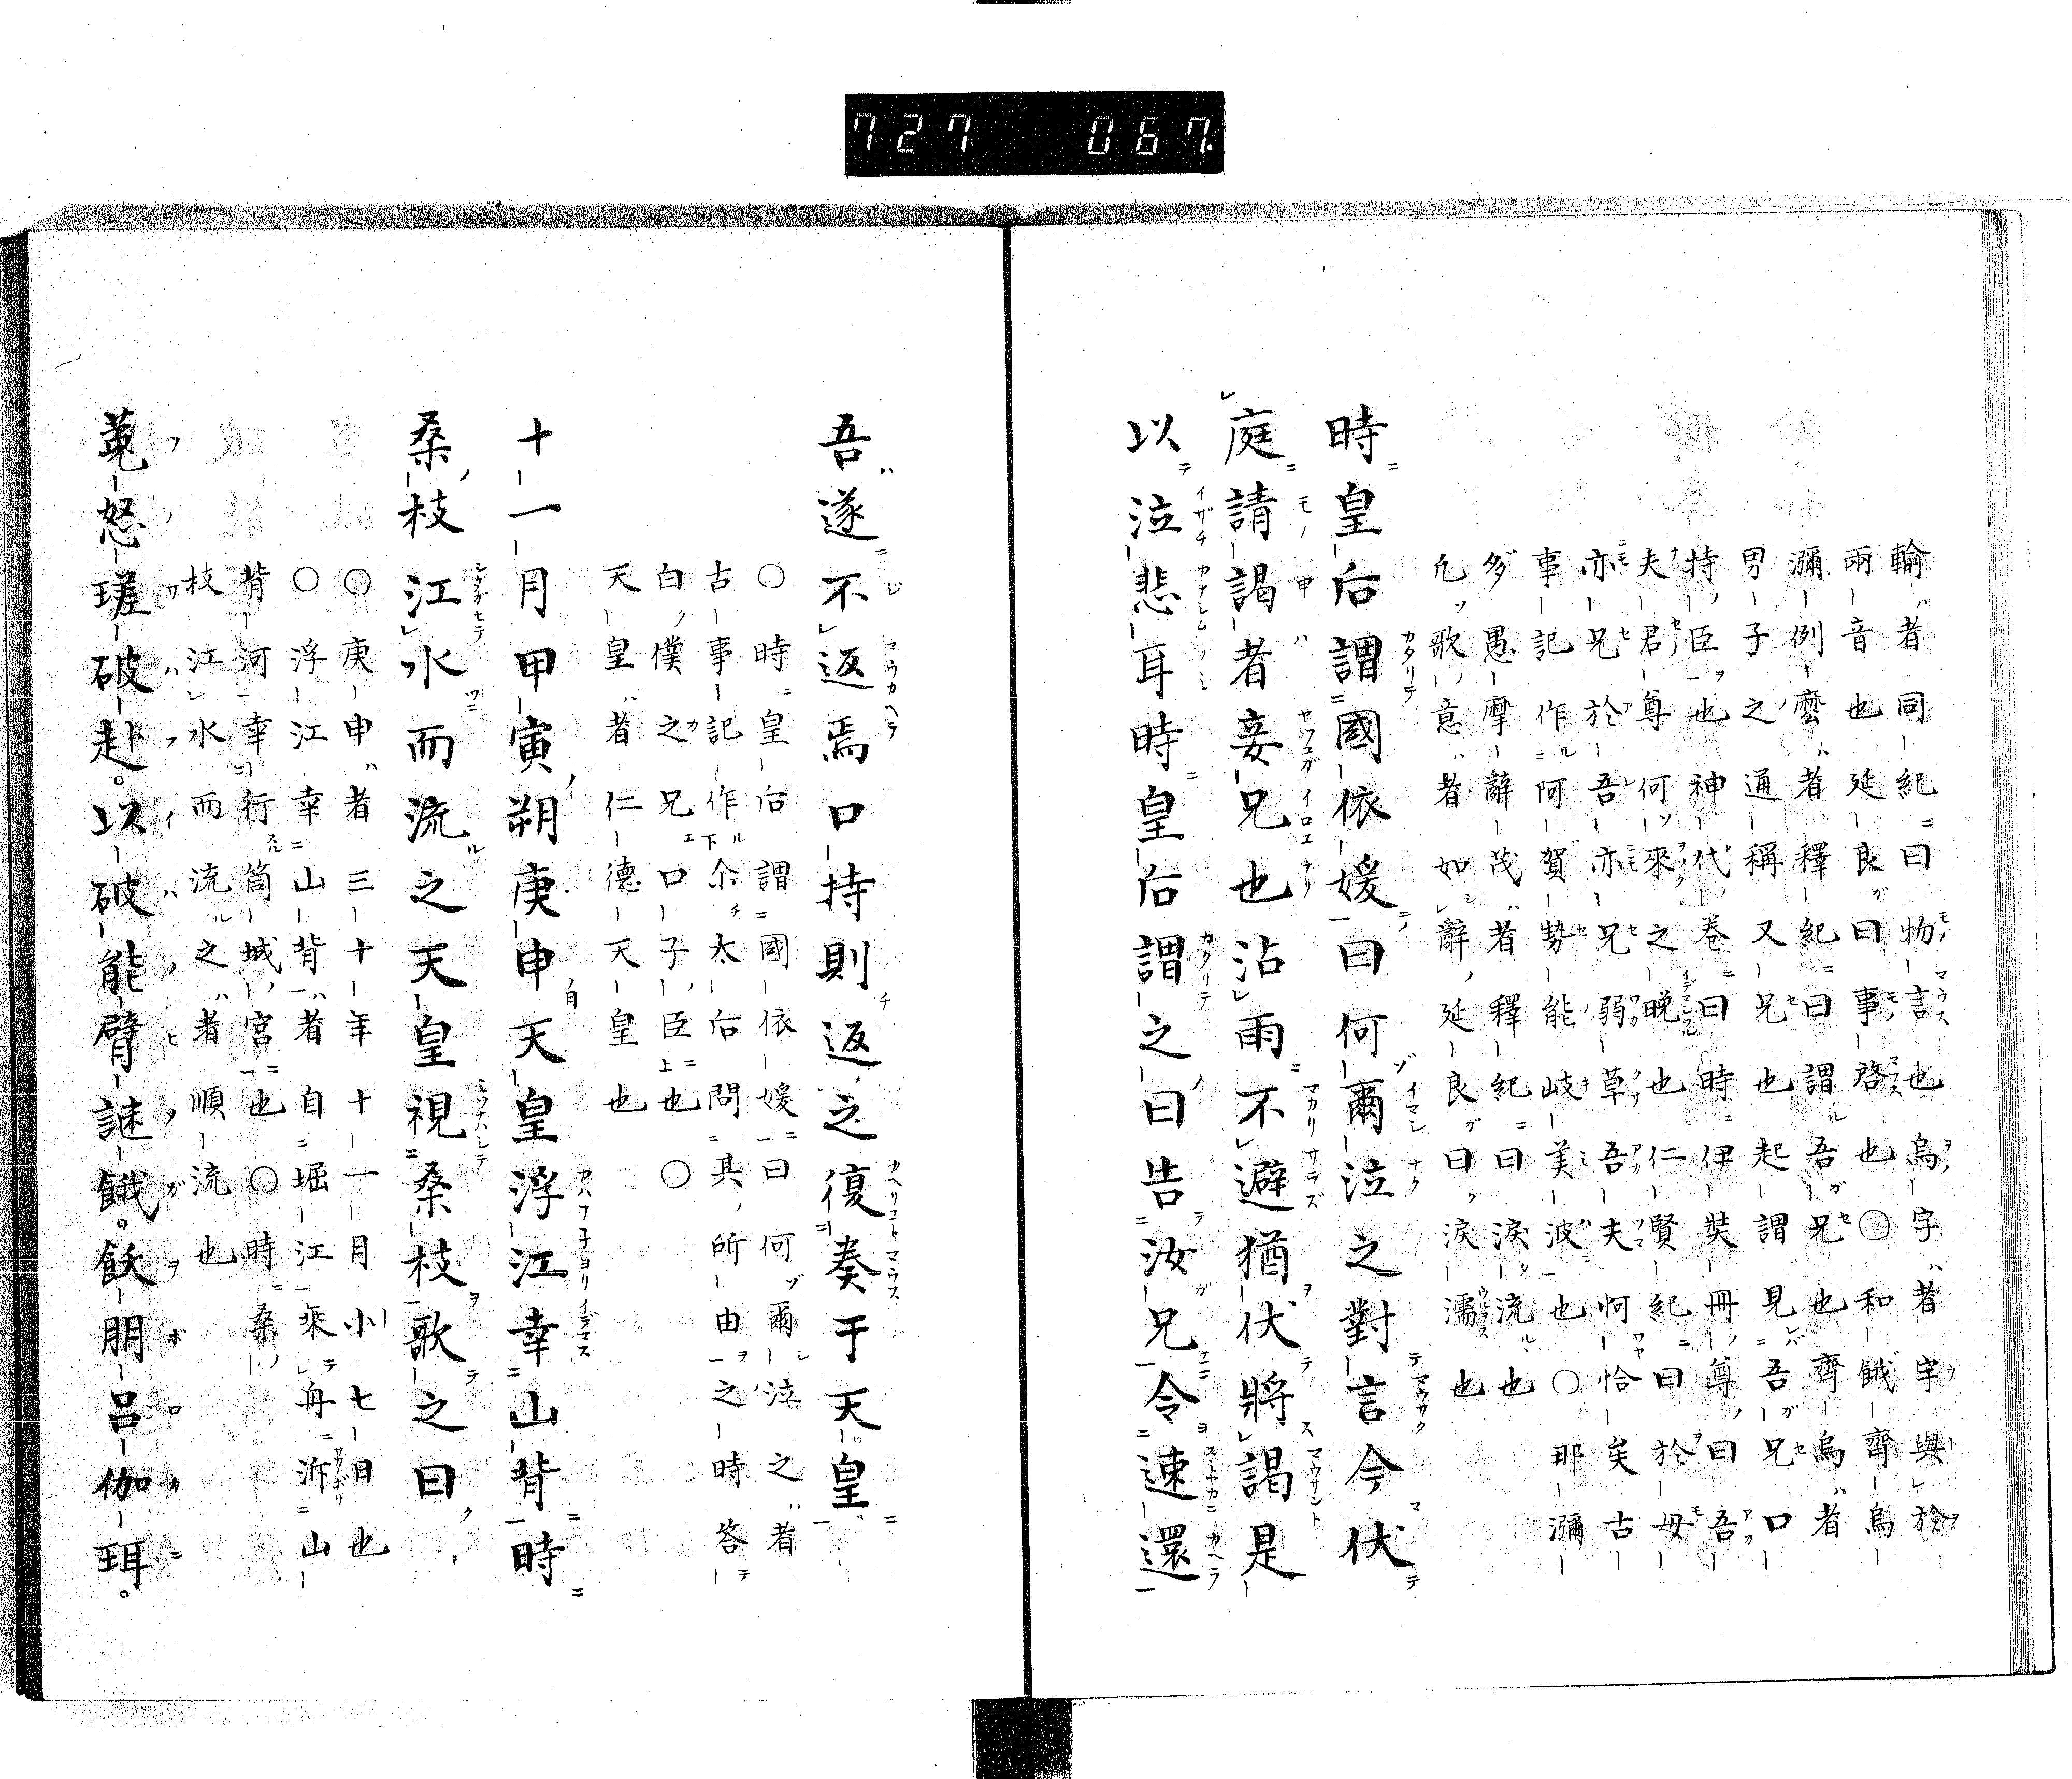 727 067.
輸者同紀曰物言也烏字者宇與於
兩音也延良曰事啓也〇和餓齊烏
瀰例麼者釋紀曰謂吾兄也齊烏者
男子之通稱又兄也起謂見吾兄口
持臣也神代卷曰時伊奘冊尊曰吾
夫君尊何來之晚也仁賢紀曰於母
亦兄於吾亦兄弱草吾夫𪫧怜矣古
事記作阿賀勢能岐美波也〇那瀰
多愚摩辭茂者釋紀曰淚流也
凢歌意者如辭延良曰淚濡也
時皇后謂國依媛曰何爾泣之對言今伏
庭請謁者妾兄也沾雨不避猶伏將謁是
以泣悲耳時皇后謂之曰告汝兄令速還
吾遂不返焉口持則返之復奏于天皇
〇時皇后謂國依媛曰何爾泣之者
古事記作尒太后問其所由之時答
白僕之兄口子臣也〇
天皇者仁德天皇也
十一月甲寅朔庚申天皇浮江幸山背時
桑枝江水而流之天皇視桑枝歌之曰
〇庚申者三十年十一月小七日也
〇浮江幸山背者自堀江乘舟泝山
背河幸行筒城宮也〇時桑
枝江水而流之者順流也
菟怒瑳破赴。以破能臂謎餓。飫朋呂伽珥。